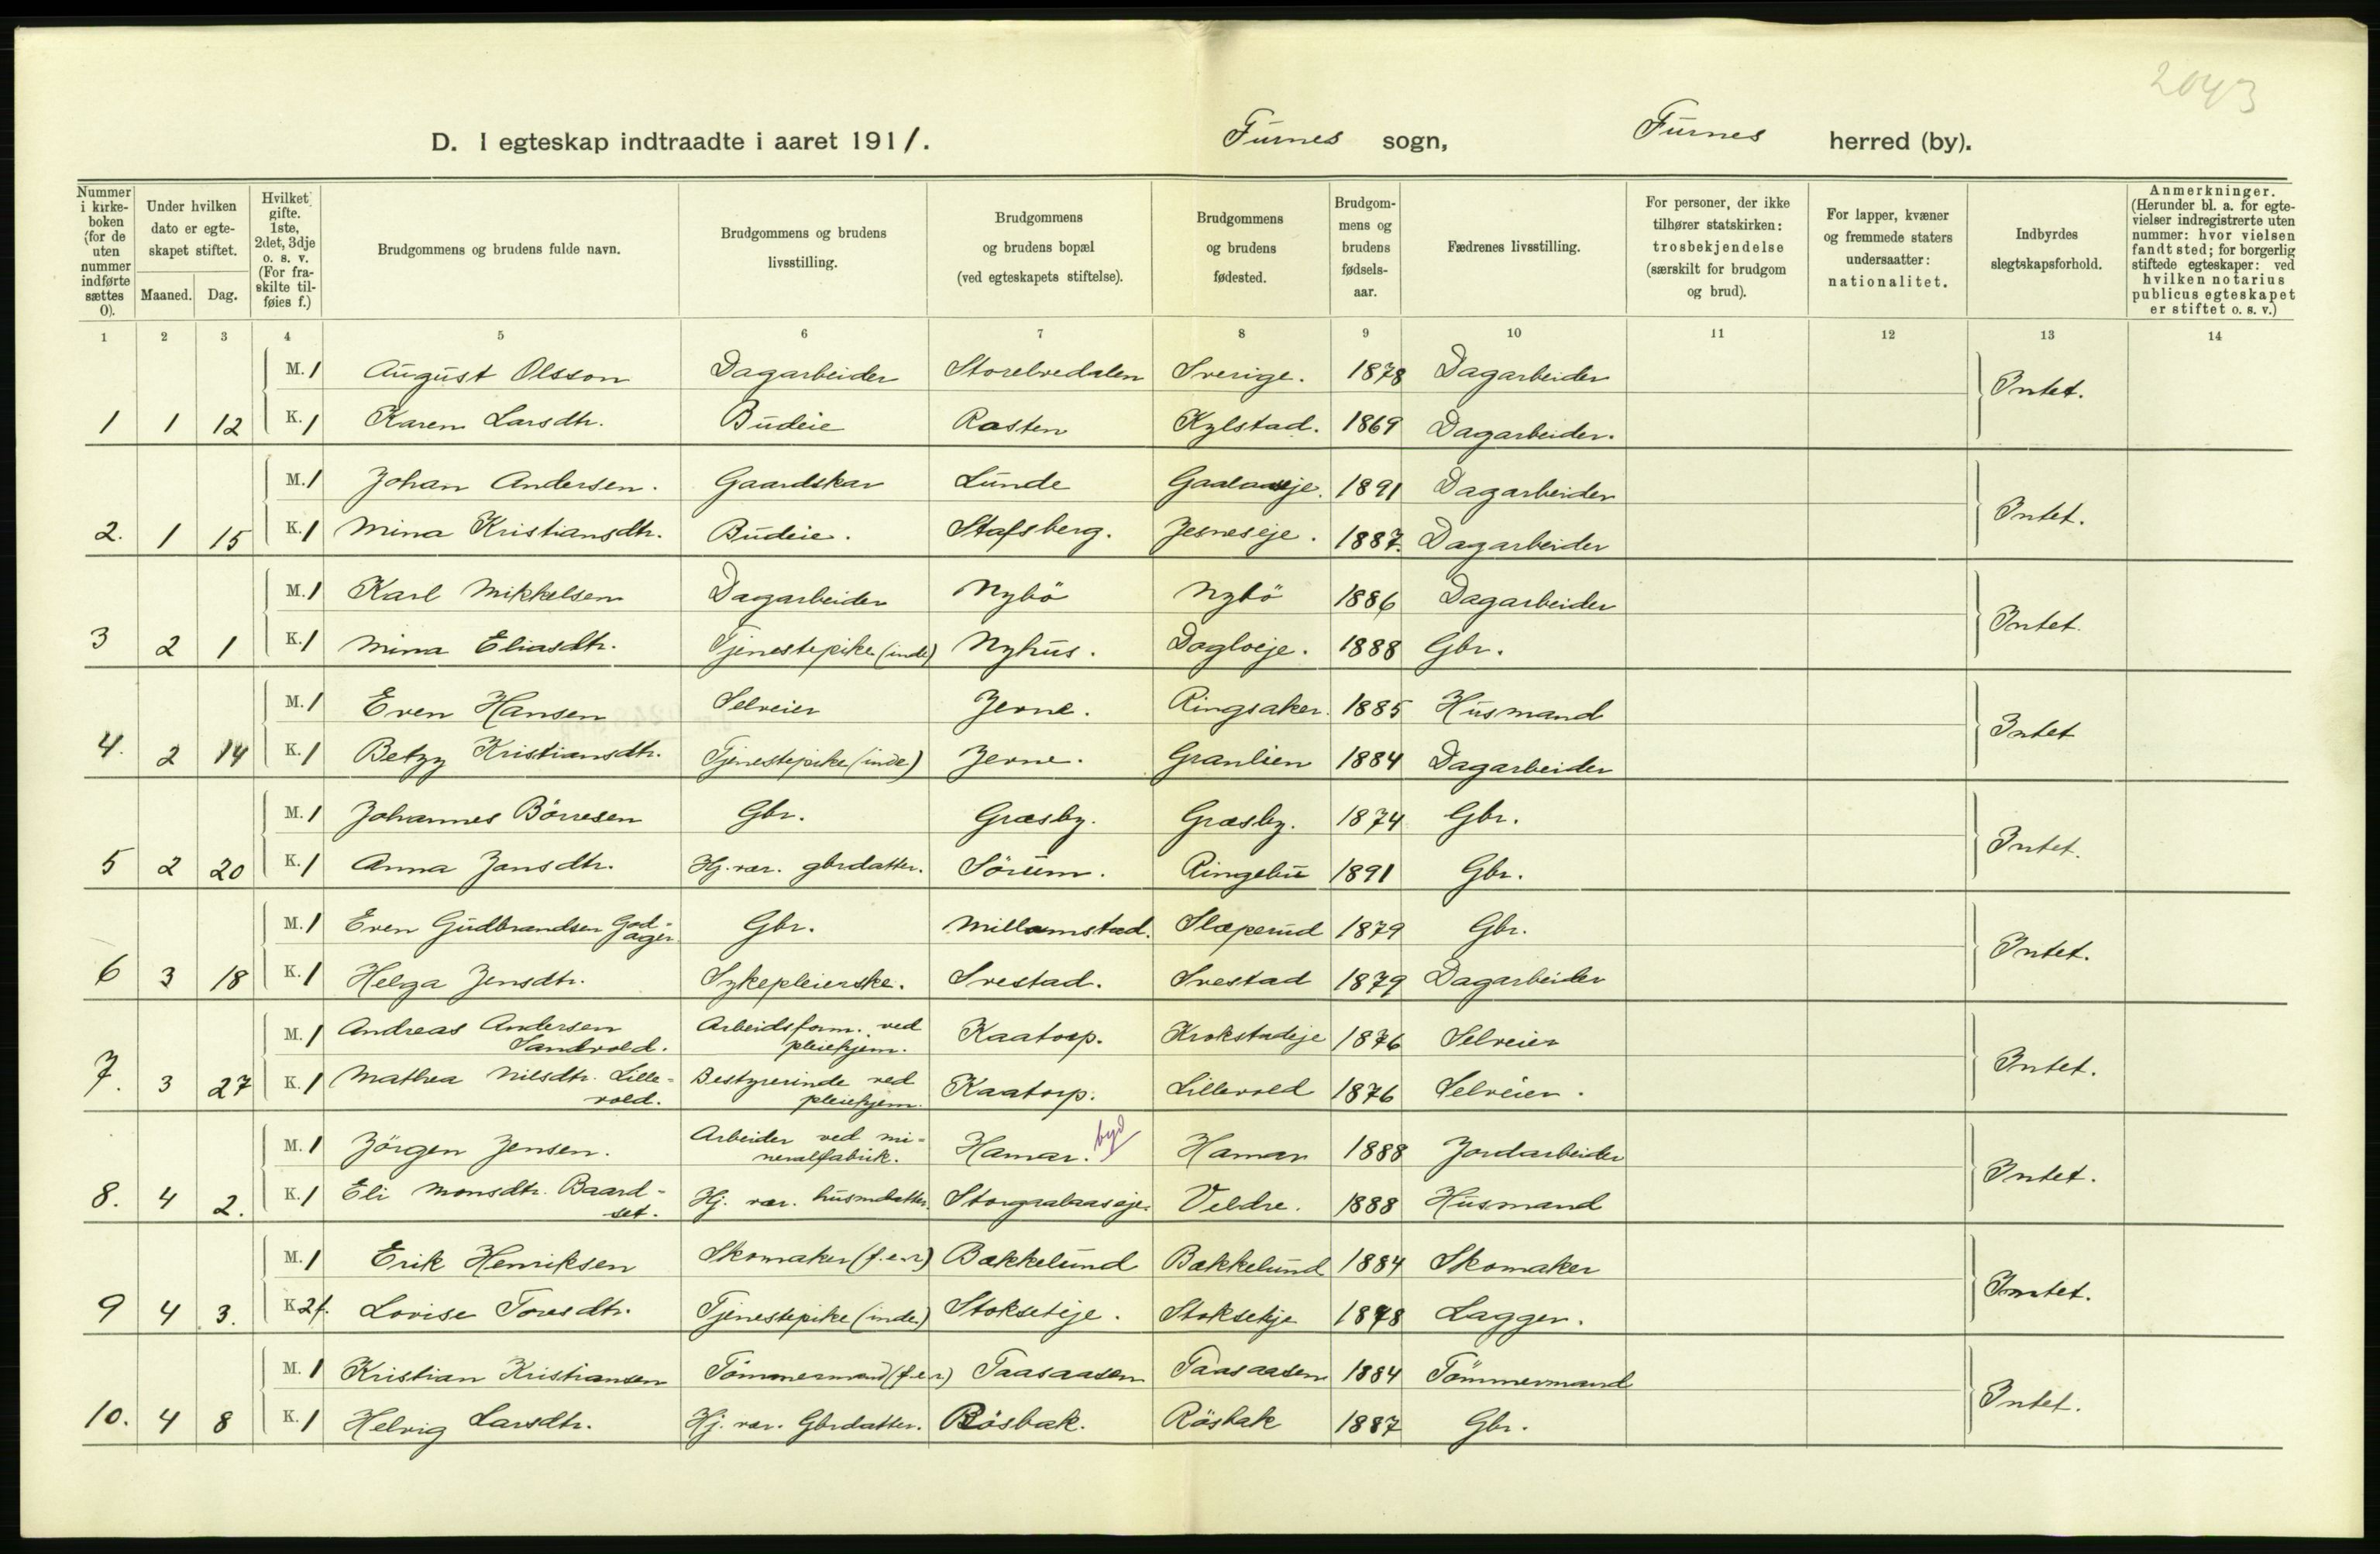 2043
D. I egteskap indtraadte i aaret 1911. Furnes sogn, Furnes herred (by).
Nummer i kirke-boken (for de uten nummer indførte sættes 0).
Under hvilken dato er egte-skapet stiftet.
Maaned. Dag.
Hvilket gifte. 1ste, 2det, 3dje o. s. v. (For fra-skilte til-føies f.)
Brudgommens og brudens fulde navn.
Brudgommens og brudens livsstilling.
Brudgommens og brudens bopæl (ved egteskapets stiftelse).
Brudgommens og brudens fødested.
Brudgom-mens og brudens fødsels-aar.
Fædrenes livsstilling.
For personer, der ikke tilhører statskirken: trosbekjendelse (særskilt for brudgom og brud).
For lapper, kvæner og fremmede staters undersaatter: nationalitet.
Indbyrdes slegtskapsforhold.
Anmerkninger. (Herunder bl. a. for egte-vielser indregistrerte uten nummer: hvor vielsen fandt sted; for borgerlig stiftede egteskaper: ved hvilken notarius publicus egteskapet er stiftet o. s. v.)
1 2 3 4 5 6 7 8 9 10 11 12 13 14
M. 1 August Olsson Dagarbeider Storelvedalen Sverige. 1878 Dagarbeider Intet.
1 1 12 K. 1 Karen Larsdtr. Budeie Rasten Kylstad. 1869 Dagarbeider.
M. 1 Johan Andersen. Gaardskar Lunde Gaalaaseje. 1891 Dagarbeider Intet.
2. 1 15 K. 1 Mina Kristiansdtr. Budeie. Stafsberg. Jesneseje. 1887. Dagarbeider
M. 1 Karl Mikkelsen Dagarbeider Nybö Nybö 1886 Dagarbeider Intet.
3 2 1 K. 1 Mina Eliasdtr. Tjenestepike (inde) Nyhus. Dagloeje. 1888 Gbr.
M. 1 Even Hansen Selveier Jerne. Ringsaker. 1885 Husmand Intet
4. 2 14 K. 1 Betzy Kristiansdtr. Tjenestepike (inde) Jerne. Granlien 1884 Dagarbeider
M. 1 Johannes Börresen Gbr. Græsby. Græsby. 1874 Gbr. Intet.
5 2 20 K. 1 Anna Jansdtr. Hj. vær. gbrdatter. Sörum. Ringebu 1891 Gbr.
M. 1 Even Gudbrandsen God-ager Gbr. Millomstad. Slæperud 1879 Gbr. Intet.
6 3 18 K. 1 Helga Jensdtr. Sykepleierske. Svestad. Svestad 1879 Dagarbeider
M. 1 Andreas Andersen Sandvold. Arbeidsform. ved pleiehjem. Kaatorp. Krokstadeje 1876 Selveier Intet.
7. 3 27 K. 1 Mathea Nilsdtr. Lille-vold. Bestyrerinde ved pleiehjem. Kaatorp. Lillevold 1876 Selveier.
M. 1 Jörgen Jensen. Arbeider ved mi-neralfabrik. Hamar. by Hamar 1888 Jordarbeider Intet.
8. 4 2. K. 1 Eli Monsdtr. Baard-set. Hj. vær. husmdatter. Storgaalaaseje. Veldre. 1888 Husmand
M. 1 Erik Henriksen Skomaker (f.e.r) Bækkelund Bækkelund 1884 Skomaker Intet.
9 4 3. K. 2 f. Lovise Toresdtr. Tjenestepike (inde) Stokseteje. Stokseteje 1878 Lægger.
M. 1 Kristian Kristiansen Tömmermand (f.e.r) Taasaasen Taasaasen 1884 Tömmermand Intet.
10. 4 8 K. 1 Helvig Larsdtr. Hj. vær. Gbrdatter. Rösbak. Rösbak 1887 Gbr.